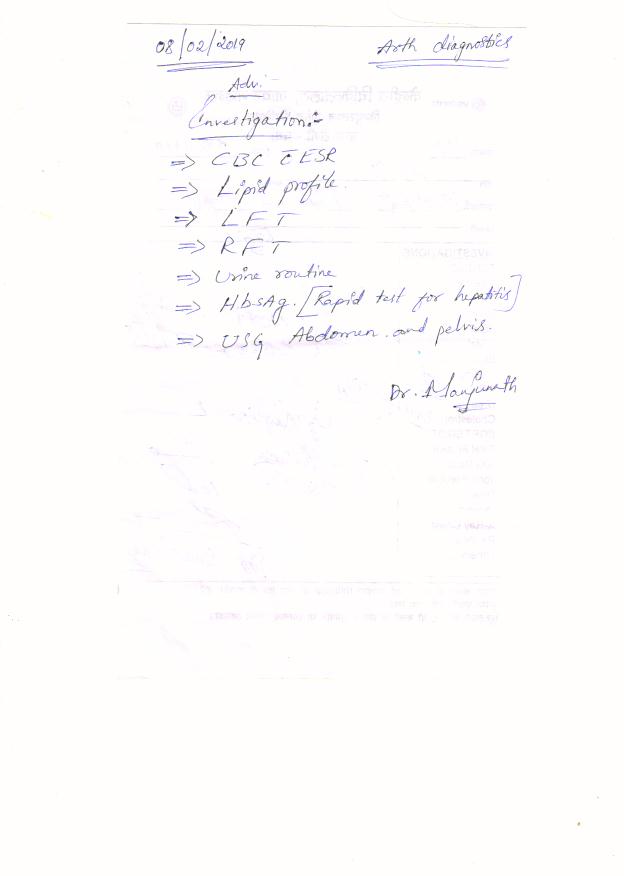 08/02/2019 Arth diagnostics
Adv:-
Investigation:-
=> CBC c̄ ESR
=> Lipid profile.
=> LFT
=> RFT
=> Urine routine
=> HbsAg. [Rapid test for hepatitis]
=> USG Abdomen and pelvis.
Dr. Manjunath